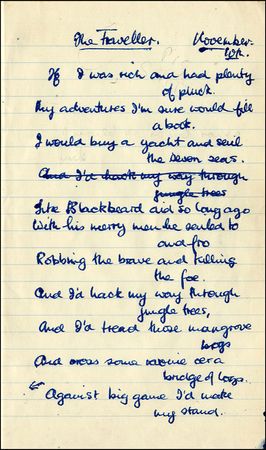 The Traveller. November
If I was rich and had plenty
of pluck.
My adventures I'm sure would fill
a book.
I would buy a yacht and sail
the seven seas.
And I'd hack my way through
jungle trees
Like Blackbeard did so long ago
With his merry men he sailed to
and fro
Robbing the brave and killing
the foe.
And I'd hack my way through
jungle trees,
And I'd tread those mangrove
bogs
And cross some ravine o'er a
bridge of logs.
Against big game I'd make
my stand.